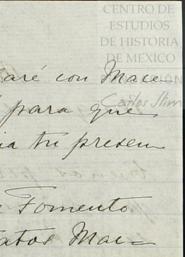 CENTRO DE
ESTUDIOS
DE HISTORIA
DE MEXICO
aré con Mace
para que
ia tu presen
Carlos Slim
Fomento
tatos Mac-